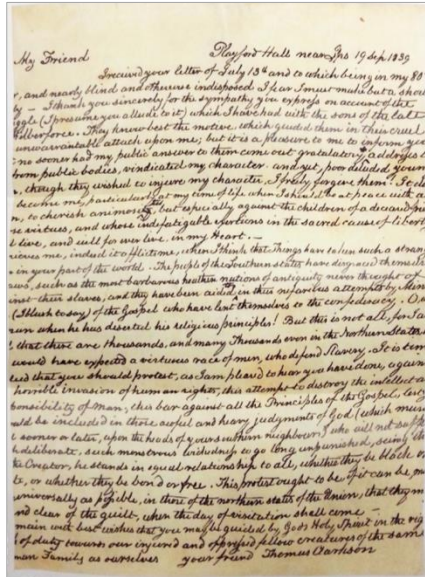 My Friend Playford Hall near Ips 19 Sep 1839
I received your letter of July 13th and to which being in my 80
r, and nearly blind and otherwise indisposed I fear I must make but a short
ly — I thank you sincerely for the sympathy you express on account of the
uggle (I presume you allude to it) which I have had with the sons of the late
Wilberforce. They know best the motive which guided them in their cruel
unwarrantable attack upon me; but it is a pleasure to me to inform you
no sooner had my public answer to them came out gratulatory addresses to
from public bodies, vindicated my character and yet, poor deluded young
, though they wished to injure my character, I freely forgive them! To do
become me, particularly at my time of life when I should be at peace with a
n, to cherish animosity, but especially against the children of a deceased
se virtues, and whose indefatigable exertions in the sacred cause of libert
d live, and will for ever live, in my Heart. —
ieves me, indeed it afflicts me, when I think that Things have taken such a strang
in your part of the world. The people of the Southern states have disgraced themselv
aws, such as the most barbarous heathen nations of antiquity never thought of
inst their slaves, and they have been aided in this nefarious attempt by Minis
(I blush to say) of the Gospel who have lent themselves to the confederacy.
man when he has deserted his religious principles! But this is not all, for I a
d that there are thousands, and many Thousands even in the Northern States
would have expected a virtuous race of men, who defend Slavery. It is tim
ed that you should protest, as I am pleased to hear you have done, again
horrible invasion of human rights, this attempt to destroy the intellect a
ponsibility of Man, this bar against all the Principles of the Gospel, lest
uld be included in those awful and heavy judgments of God (which mus
l sooner or later, upon the heads of yours southern neighbours) who will not suff
h deliberate, such monstrous wickedness to go long unpunished, seeing th
the Creator, he stands in equal relationship to all, whether they be black o
te, or whether they be bond or free. This protest ought to be, if it can be, ma
universally as possible, in these of the northern states of the Union, that they m
nd clear of the guilt, when the day of visitation shall come —
main with best wishes that you may be guided by God's Holy Spirit in the rig
of duty towards our injured and oppressed fellow creatures of the same
man Family as ourselves your friend Thomas Clarkson